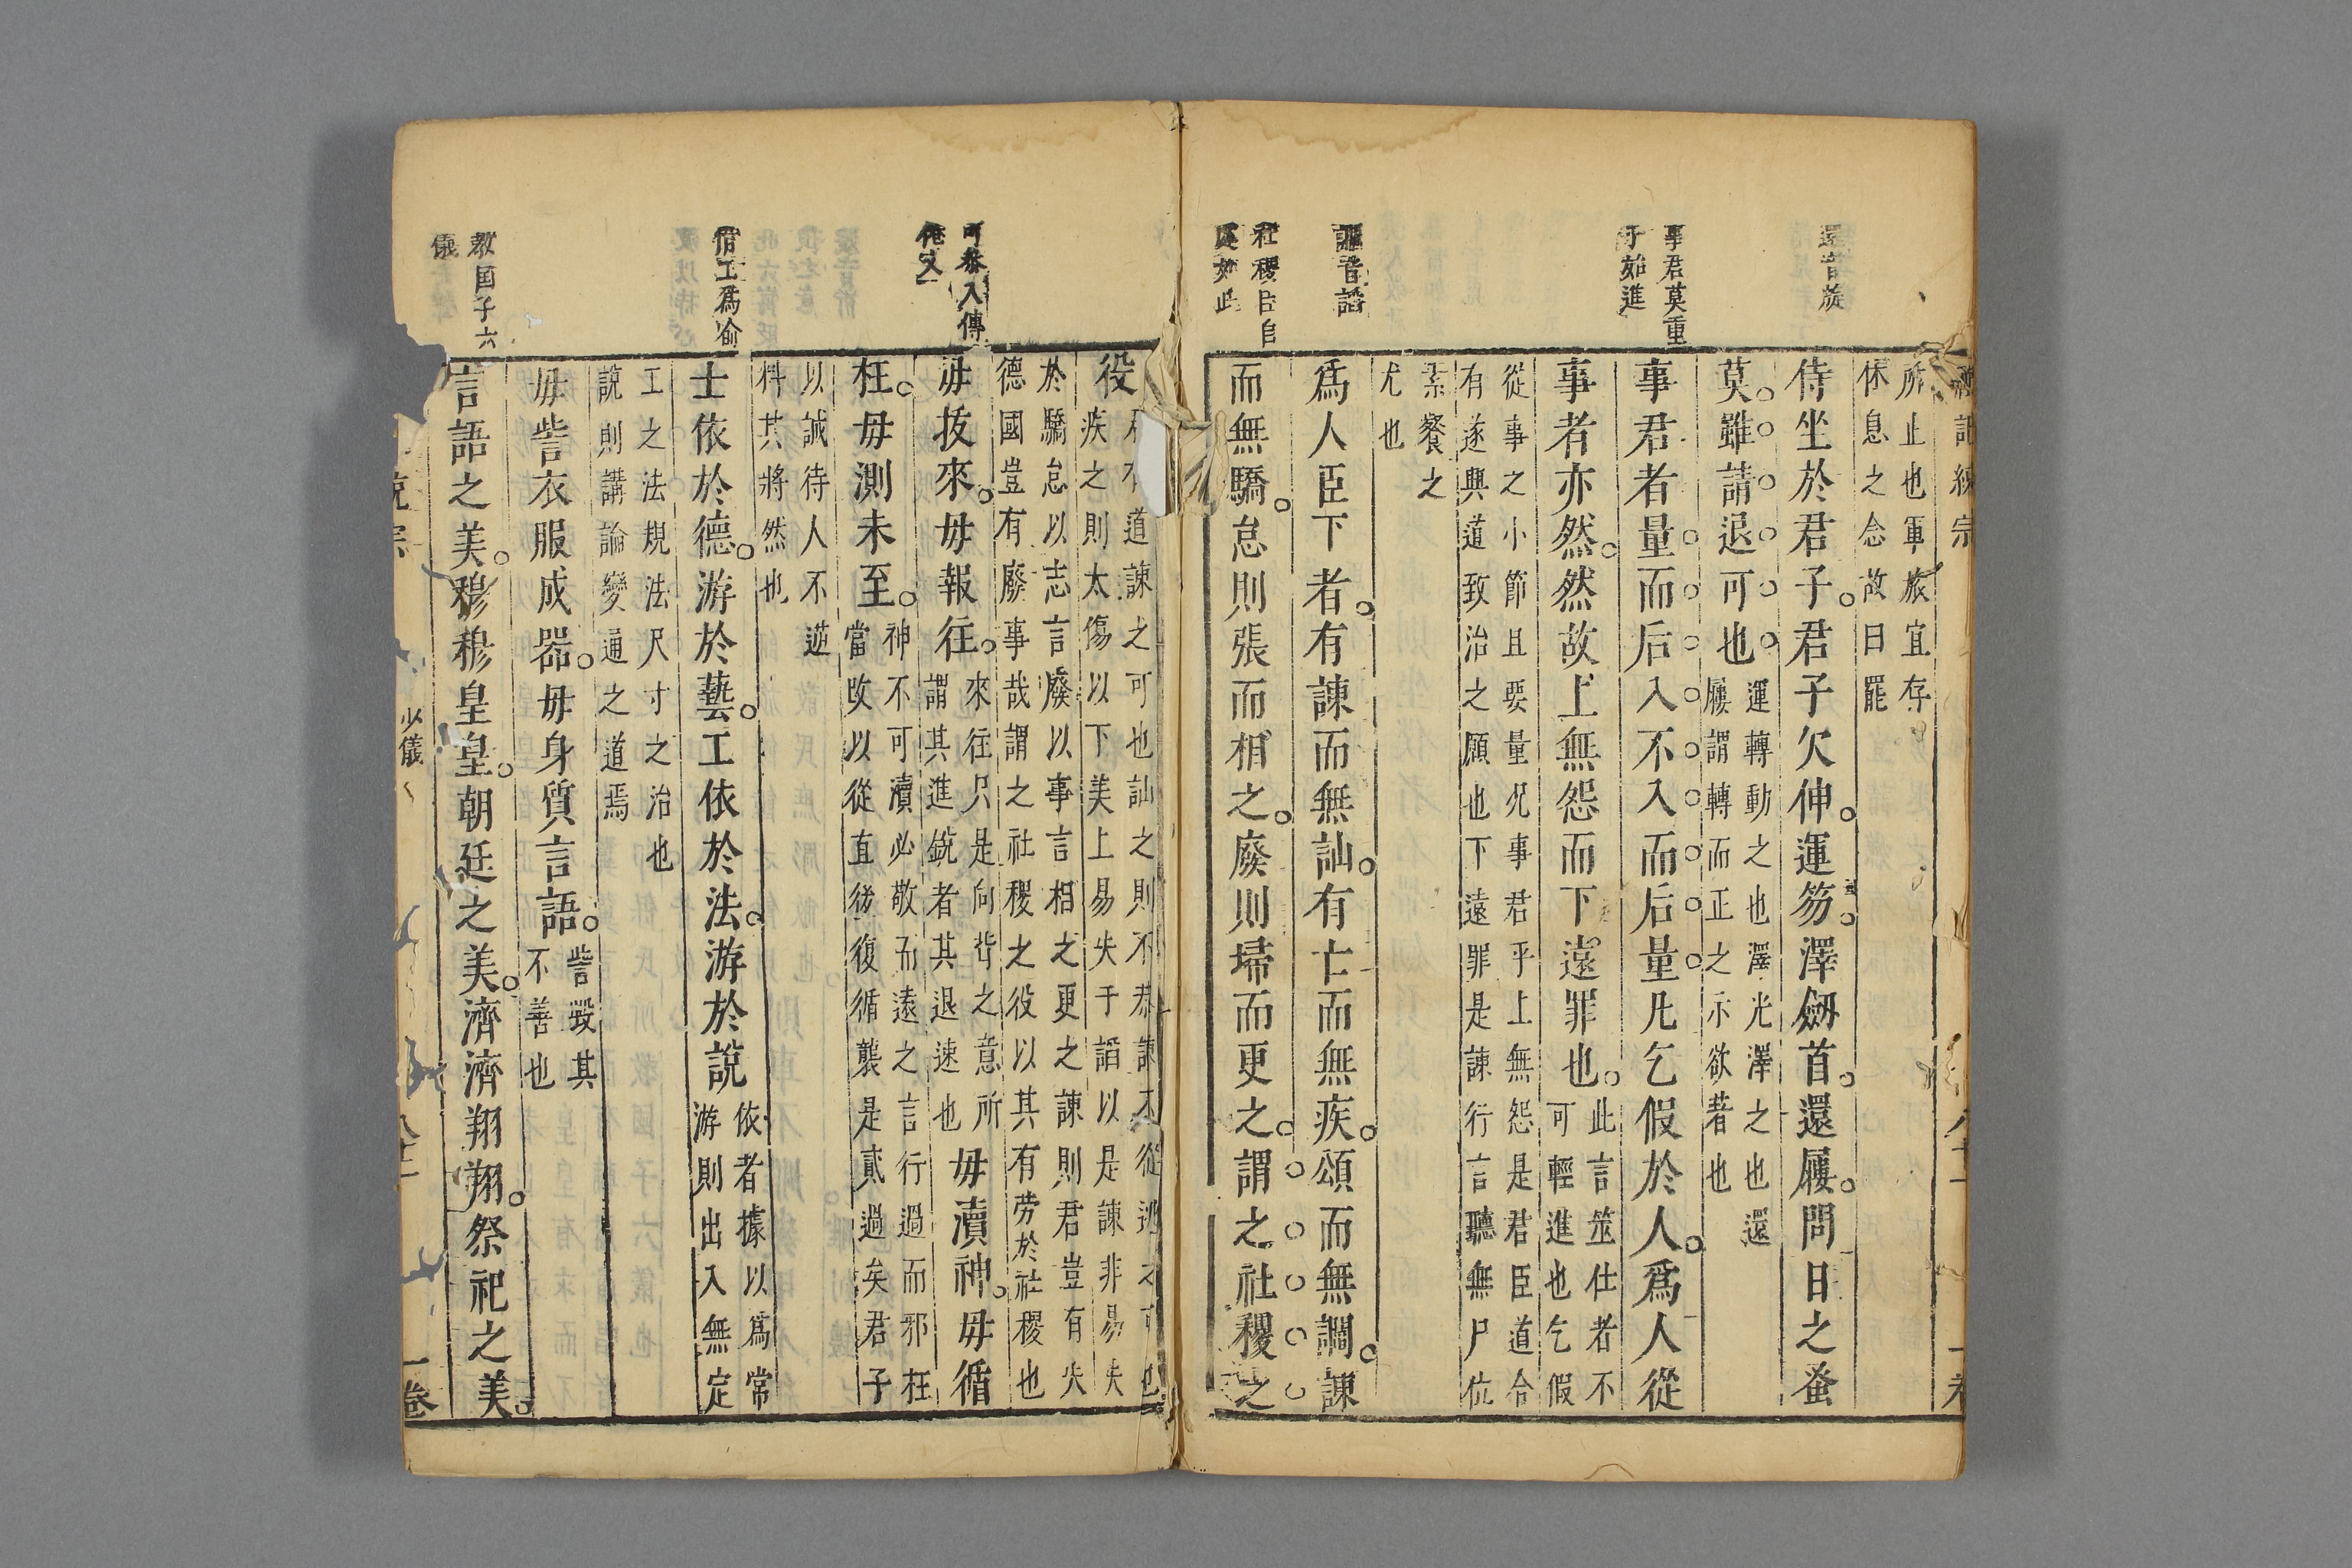 還音旋
事君莫重
于始進
讇音諂
社稷臣自
所止也軍旅宜存
休息之念故日罷
侍坐於君子君子欠伸運笏澤劒首還屨問日之蚤
莫雖請退可也
運轉動之也澤光澤之也還
屨謂轉而正之示欲着也
事君者量而后入不入而后量凡乞假於人爲人從
事者亦然然故上無怨而下遠罪也
此言筮仕者不
可輕進也乞假
從事之小節且要量況事君乎上無怨是君臣道合
有遂興道致治之願也下遠罪是諫行言聽無尸位
素餐之
尤也
爲人臣下者有諫而無訕有亡而無疾頌而無讇諫
而無驕怠則張而相之廢則埽而更之謂之社稷之
可叅入傳
借工爲喻
教国子六
儀
役
道諫之可也訕之則不恭諫不從逃之可也
疾之則太傷以下美上易失于諂以是諫非易失
於驕怠以志言廢以事言相之更之諫則君豈有失
德國豈有廢事哉謂之社稷之役以其有劳於社稷也
毋拔來毋報往
來往只是向背之意所
謂其進銳者其退速也
毋瀆神毋循
枉毋測未至
神不可瀆必敬而遠之言行過而邪枉
當改以從直後復循襲是貳過矣君子
以誠待人不逆
料其將然也
士依於德游於藝工依於法游於說
依者據以爲常
游則出入無定
工之法規法尺寸之治也
說則講論變通之道焉
毋訾衣服成器毋身質言語
訾毀其
不善也
言語之美穆穆皇皇朝廷之美濟濟翔翔祭祀之美
少儀